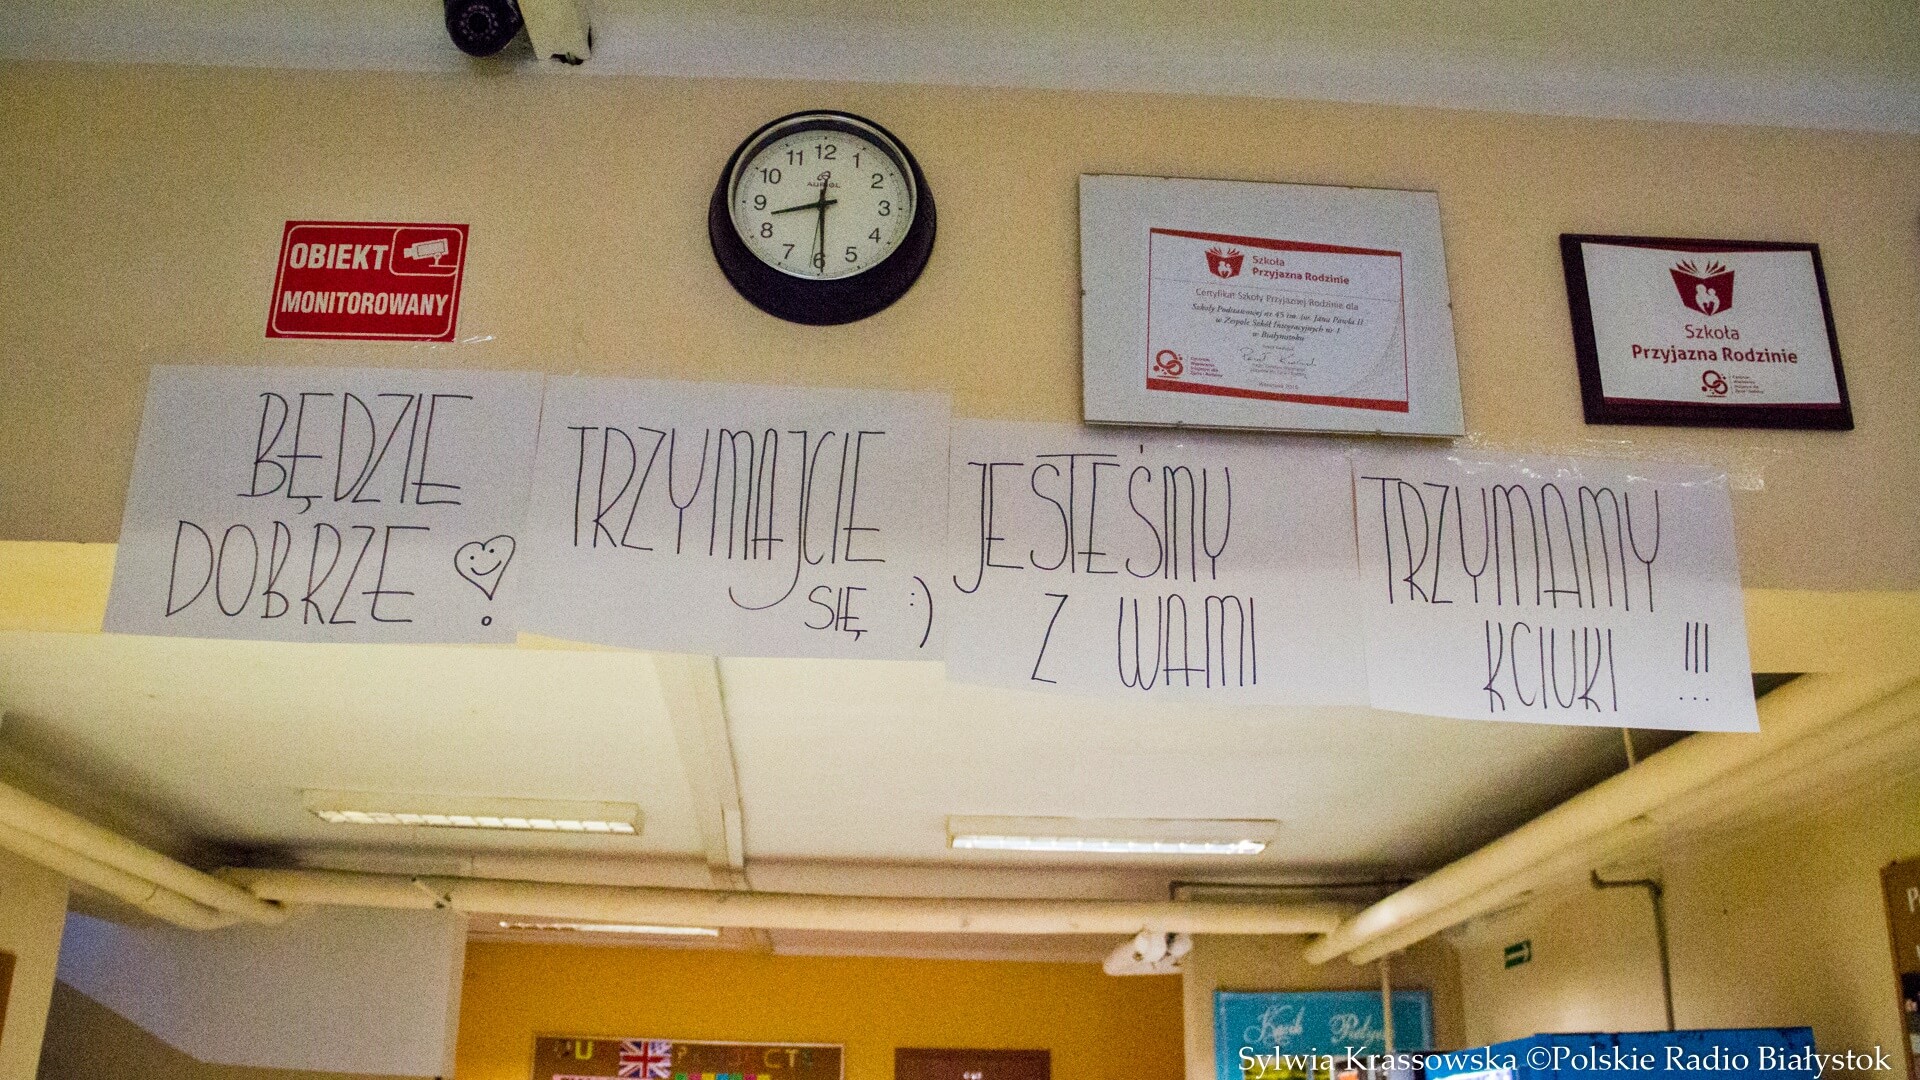 12
11
1
10
2
9
3
8
4
7
5
6
OBIEKT
MONITOROWANY
Szkoła
Przyjazna Rodzinie
Certyfikat Szkoły Przyjaznej Rodzinie dla
Szkoły Podstawowej nr 45 im. św. Jana Pawła II
w Zespole Szkół Integracyjnych nr 1
w Białymstoku
Szkoła
Przyjazna Rodzinie
BĘDZIE
DOBRZE
TRZYMAJCIE
SIĘ :)
JESTEŚMY
Z WAMI
TRZYMAMY
KCIUKI !!!
Sylwia Krassowska ©Polskie Radio Białystok